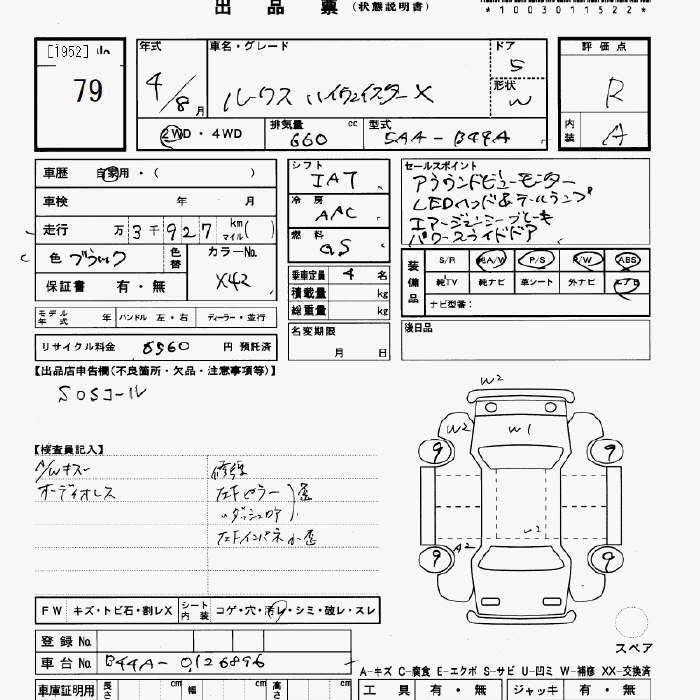 出品票 (状態説明書)
*1003011522*
[1952] 山
79
年式 4/8月
車名・グレード ルークス ハイウェイスターX
ドア 5
形状 W
評価点 R
内装 A
2WD・4WD 排気量 660 cc 型式 5AA-B44A
車歴 自家用・( )
車検 年 月
走行 万 3千927 km マイル ( )
色 ブラック 色替 カラーNo. X42
保証書 有・無
モデル年式 年 ハンドル 左・右 ディーラー・並行
リサイクル料金 8560 円 預託済
シフト IAT
冷房 AAC
燃料 GS
乗車定員 4 名
積載量 kg
総重量 kg
名変期限 月 日
セールスポイント
アラウンドビューモニター
LEDヘッド&テールランプ
エマージェンシーブレーキ
パワースライドドア
装備品 S/R 純A/W P/S R/W ABS
純TV 純ナビ 革シート 外ナビ エアB
ナビ型番:
後日品
【出品店申告欄(不良箇所・欠品・注意事項等)】
SOSコール
【検査員記入】
A/Wキズ
オーディオレス
修復
左Fピラー
〃ダッシュロア
歪
左Fインパネ小歪
W2
W2
W1
9
9
W2
A2
9
9
スペア
FW キズ・トビ石・割レX シート内装 コゲ・穴・汚レ・シミ・破レ・スレ
登録No.
車台No. B44A-0126896
A-キズ C-腐食 E-エクボ S-サビ U-凹ミ W-補修 XX-交換済
車庫証明用 長さ cm 幅 cm 高さ cm
工具 有・無 ジャッキ 有・無